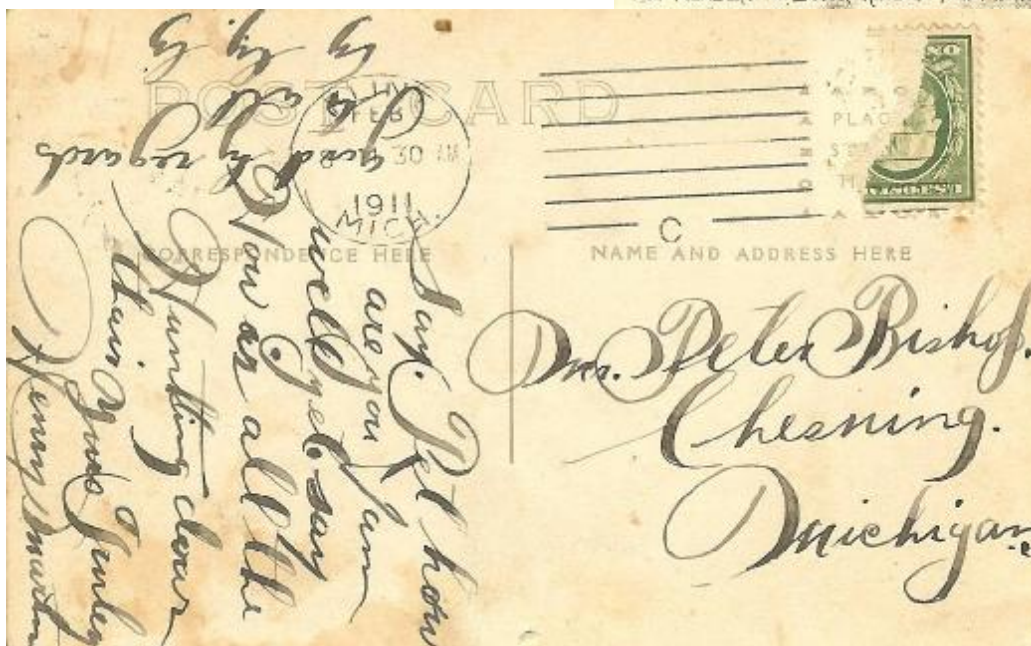 POST CARD
FEB
30 AM
1911
MICH.
C
CORRESPONDENCE HERE
NAME AND ADDRESS HERE
Mr. Peter Bishop.
Chesning.
Michigan.
Say. Pet how
are you I am
well yet. say
How ar all the
Hunting down
thair yours Truley
Henry
good by regards
to all
by by
by